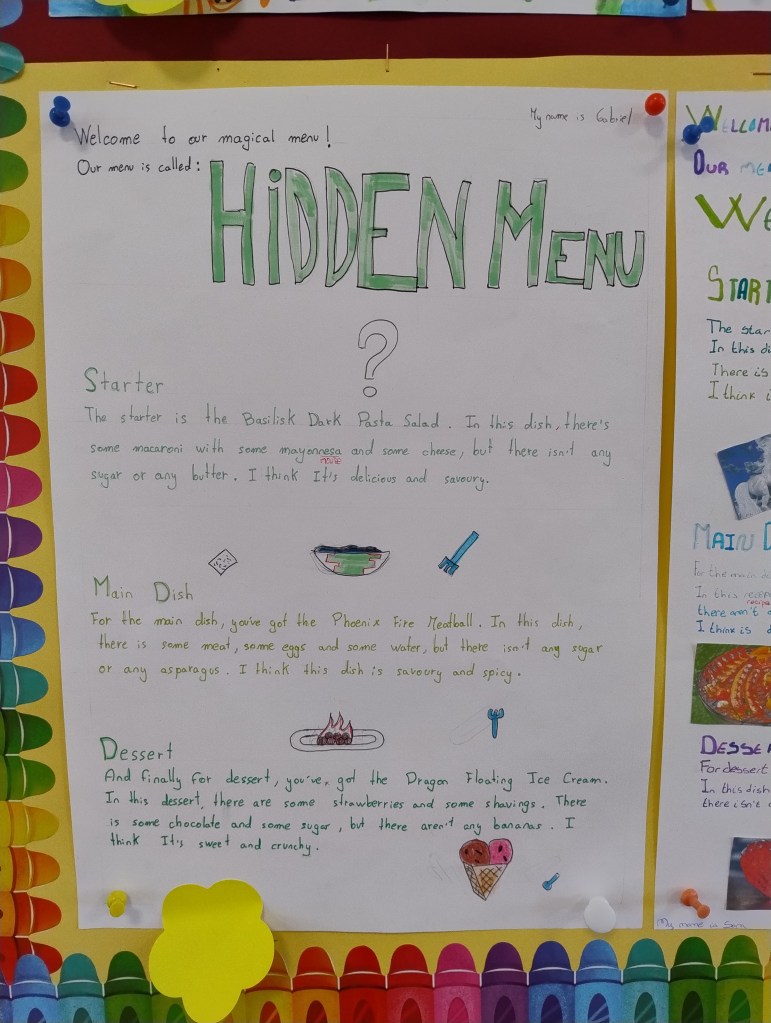 My name is Gabriel
Welcome to our magical menu!
Our menu is called:
HiDDEN MENU
?
Starter
The starter is the Basilisk Dark Pasta Salad. In this dish, there's
some macaroni with some mayonnesa and some cheese, but there isn't any
sugar or any butter. I think It's delicious and savoury.
Main Dish
For the main dish, you've got the Phoenix Fire Meatball. In this dish,
there is some meat, some eggs and some water, but there isn't any sugar
or any asparagus. I think this dish is savoury and spicy.
Dessert
And finally for dessert, you've, got the Dragon Floating Ice Cream.
In this dessert, there are some strawberries and some shavings. There
is some chocolate and some sugar, but there aren't any bananas. I
think It's sweet and crunchy.
WELLCOM
OUR ME
WE
START
The star
In this di
There is
I think i
MAIN D
For the main d
In this
recipe
there aren't
I think is d
DESSE
For dessert
In this dish
there isn't
My name is Sara